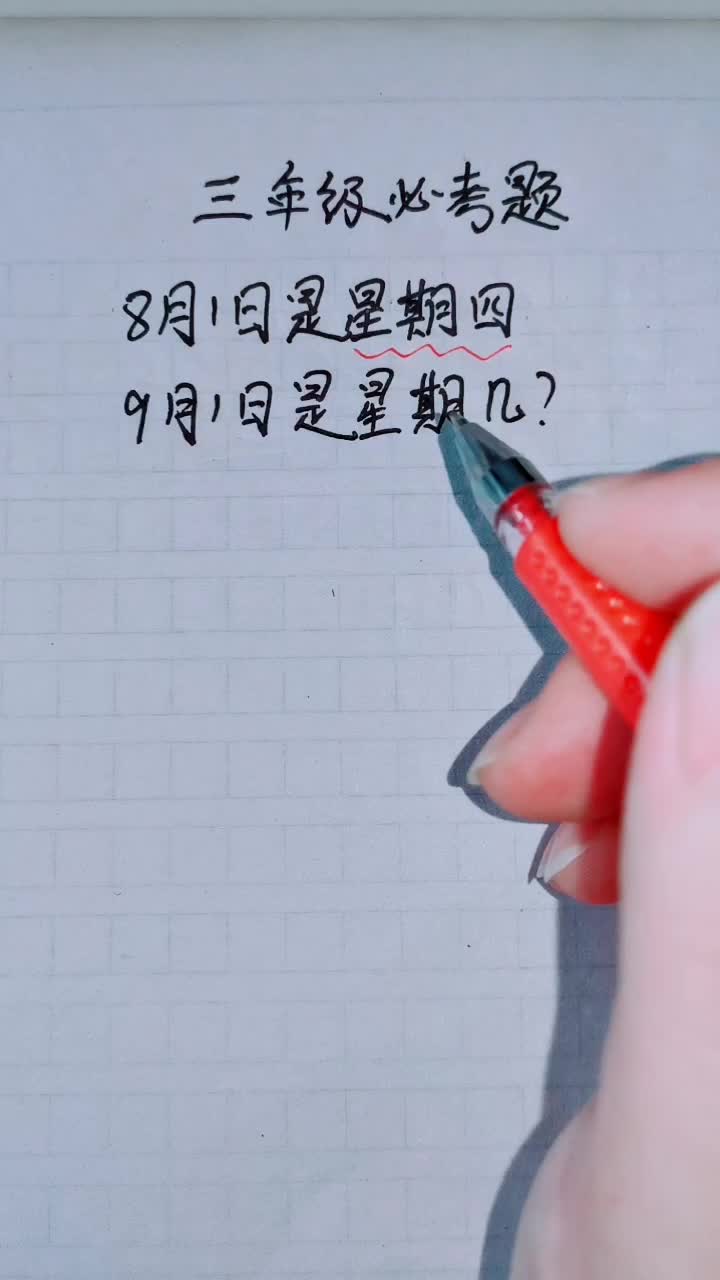 三年级必考题
8月1日是星期四
9月1日是星期几?